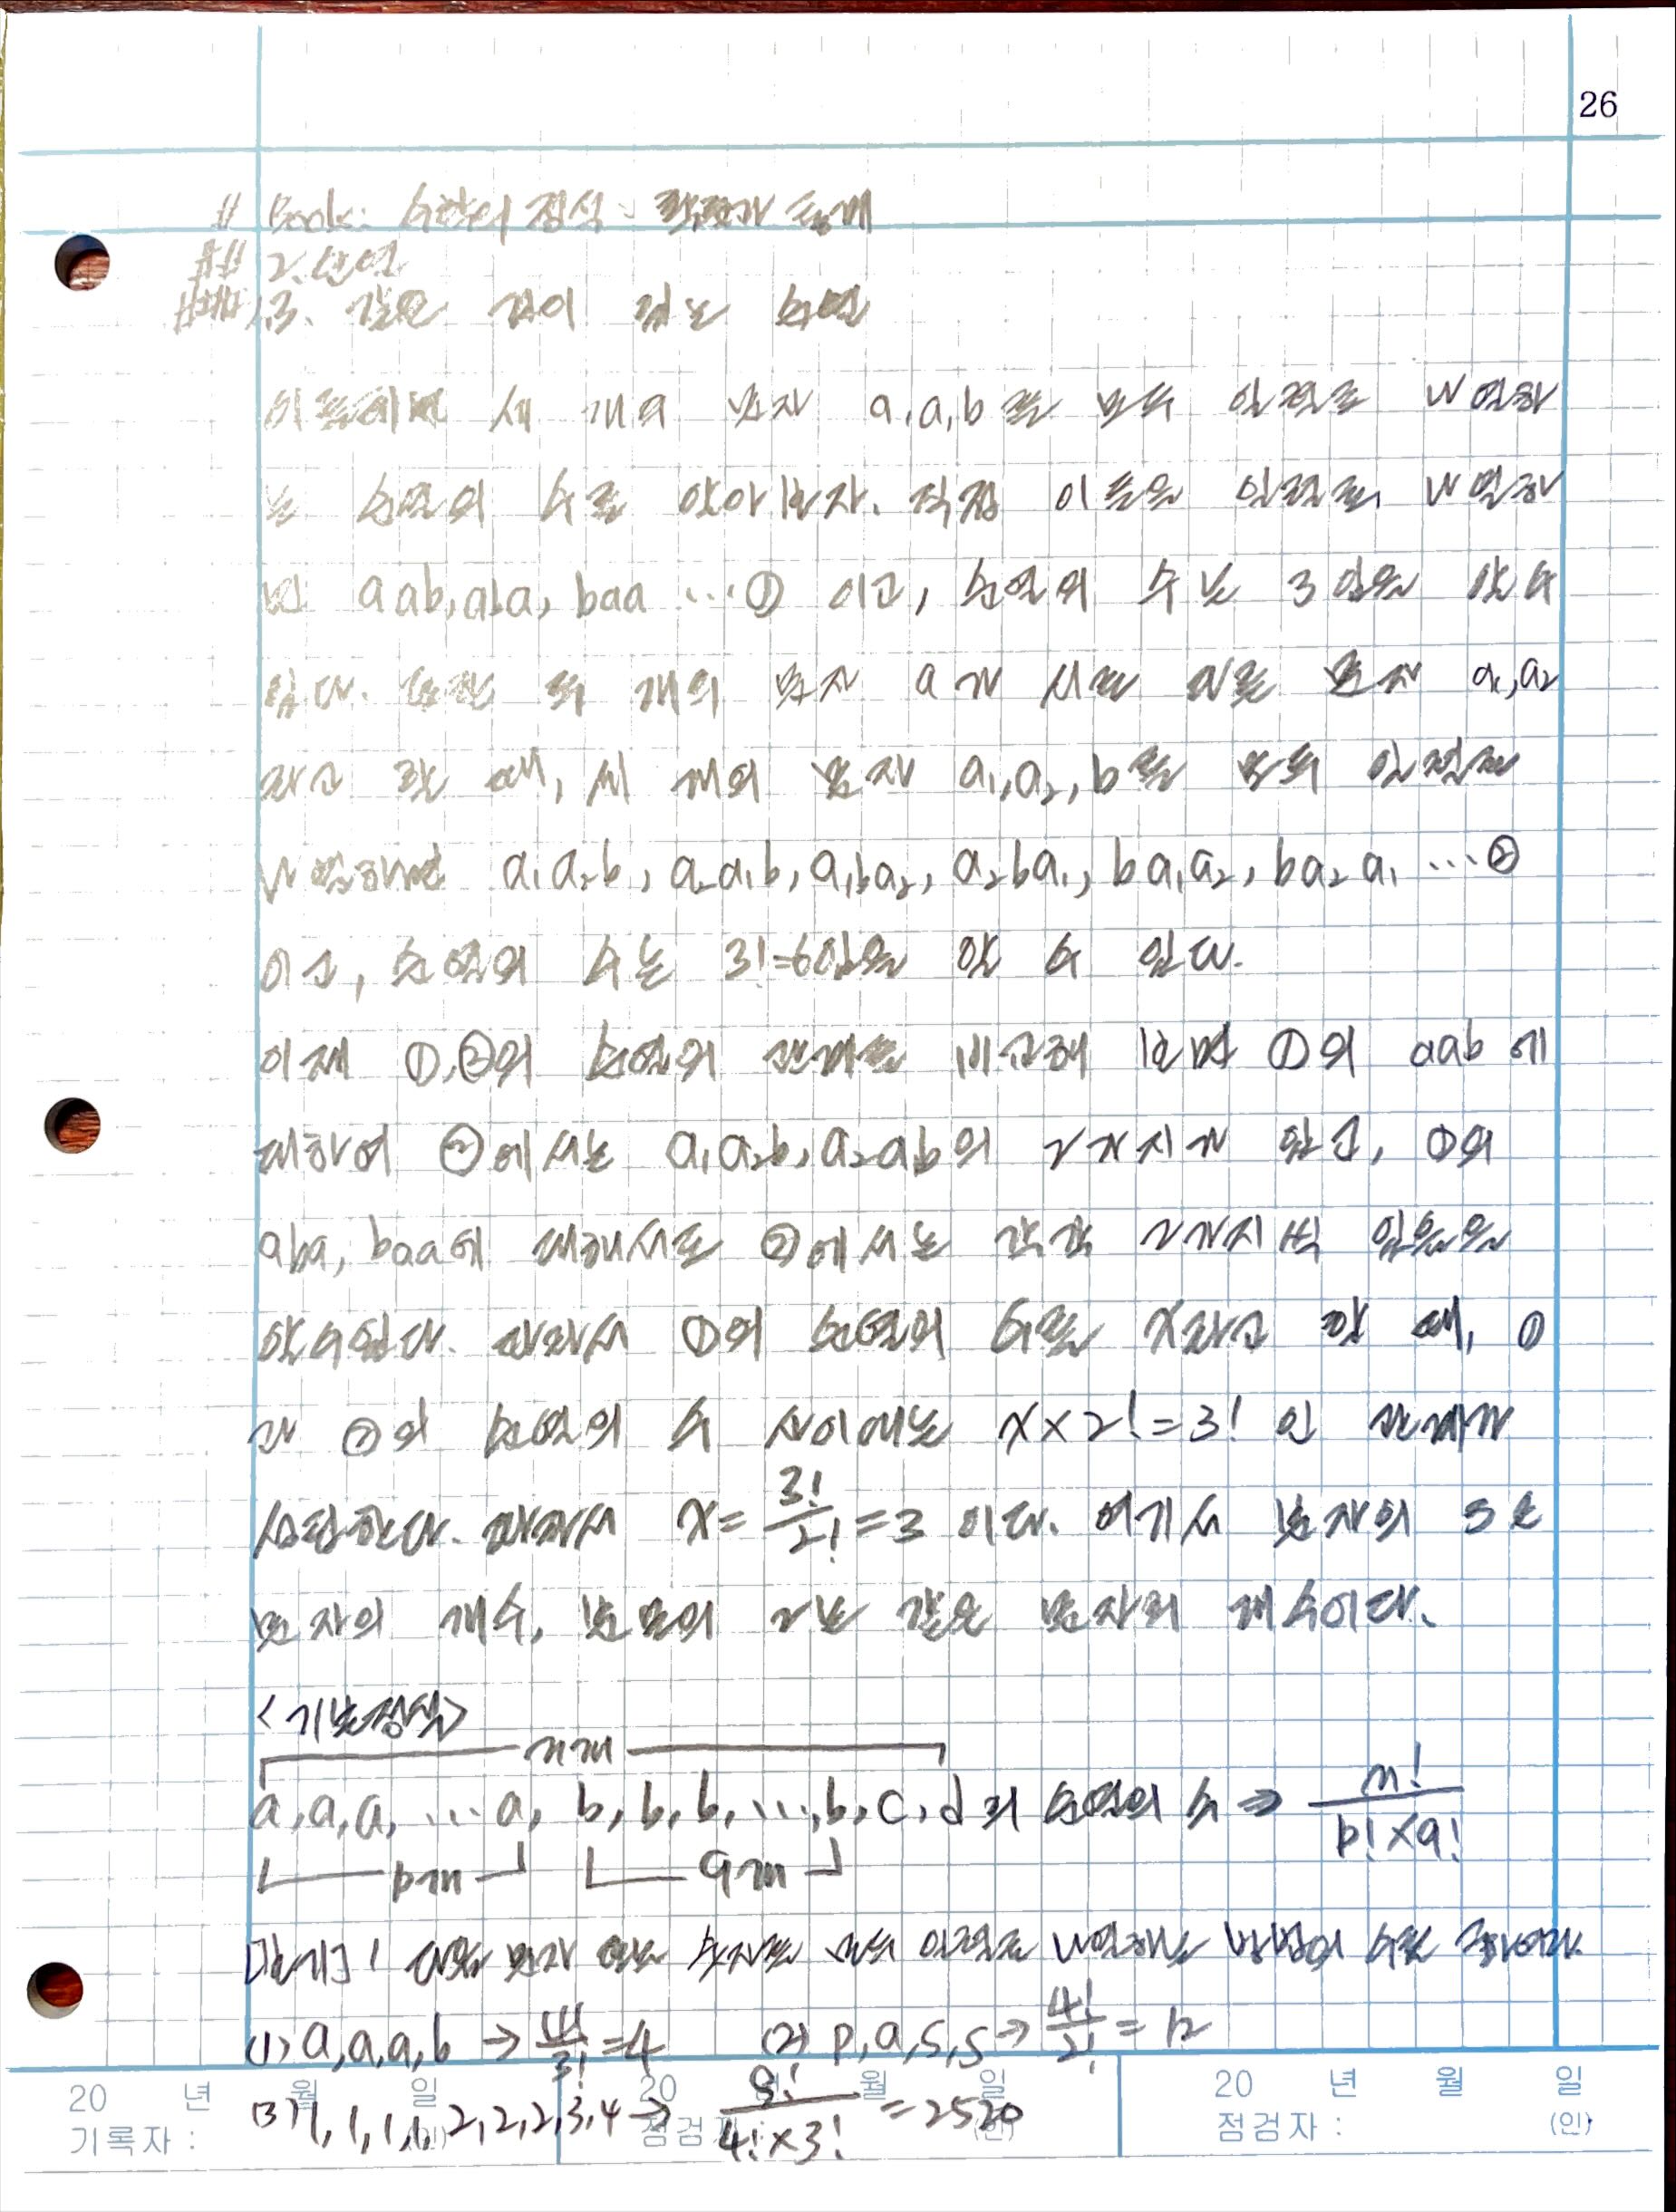 26
# Book: 수학의 정석 - 확률과 통계
## 2. 순열
### 3. 같은 것이 있는 순열
이를테면 세 개의 문자 a, a, b를 모두 일렬로 나열하
는 순열의 수를 알아보자. 직접 이들을 일렬로 나열하
면 aab, aba, baa ... ① 이고, 순열의 수는 3임을 알 수
있다. 만일 두 개의 문자 a가 서로 다른 문자 a₁, a₂
라고 할 때, 세 개의 문자 a₁, a₂, b를 모두 일렬로
나열하면 a₁a₂b, a₂a₁b, a₁ba₂, a₂ba₁, ba₁a₂, ba₂a₁ ... ②
이고, 순열의 수는 3!=6임을 알 수 있다.
이제 ①, ②의 순열의 관계를 비교해 보면 ①의 aab에
대하여 ②에서는 a₁a₂b, a₂a₁b의 2가지가 있고, ①의
aba, baa에 대해서도 ②에서는 각각 2가지씩 있음을
알 수 있다. 따라서 ①의 순열의 수를 x라고 할 때, ①
과 ②의 순열의 수 사이에는 x×2!=3! 인 관계가
성립한다. 따라서 x=3!/2!=3 이다. 여기서 분자의 3은
문자의 개수, 분모의 2는 같은 문자의 개수이다.
<기본정석>
n개
a, a, a, ... a, b, b, b, ..., b, c, d의 순열의 수 ⇒ n!/(p!×q!)
p개 q개
[보기] 1 다음 문자 또는 숫자를 모두 일렬로 나열하는 방법의 수를 구하여라.
(1) a, a, a, b → 4!/3! = 4 (2) p, a, s, s → 4!/2! = 12
(3) 1, 1, 1, 1, 2, 2, 2, 3, 4 → 9!/(4!×3!) = 2520
20 년 월 일 20 년 월 일 20 년 월 일
기록자 : (인) 점검자 : (인) 점검자 : (인)